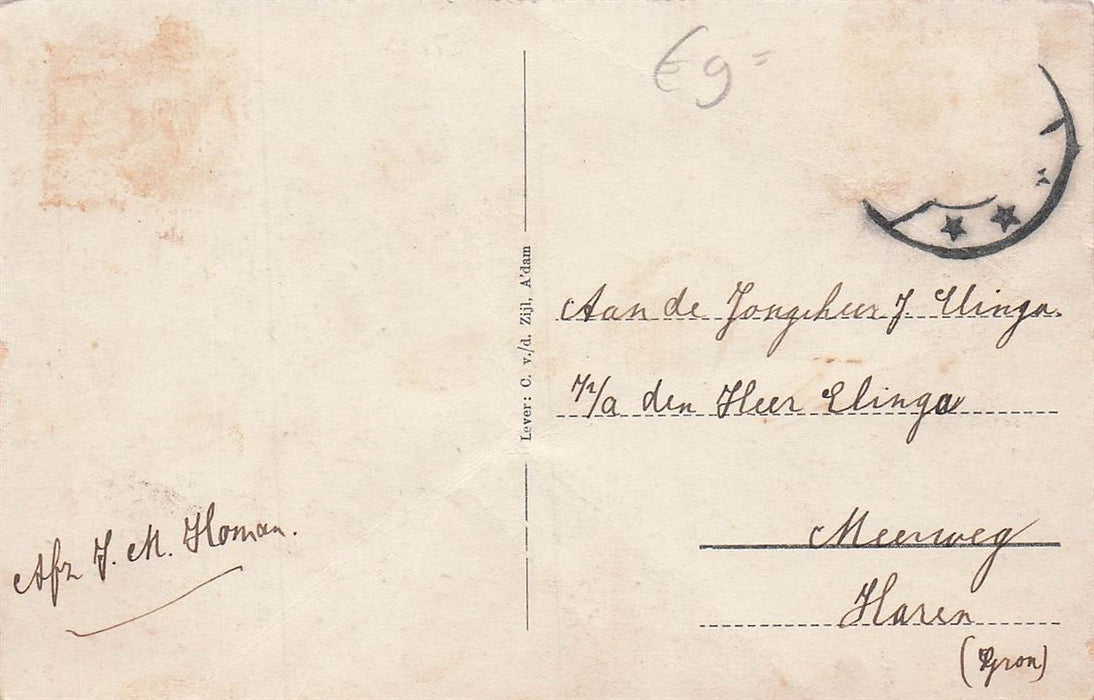 € 9=
Lever: C. v./d. Zijl, A'dam
Aan de Jongeheer J. Elinga.
P/a den Heer Elinga
Meerweg
Haren
(Gron)
Afz J. M. Homan.